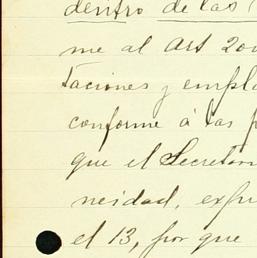 dentro de las
me al Art 20
taciones y empl
conforme á las
que el Secretari
neidad, exp
el 13, por que